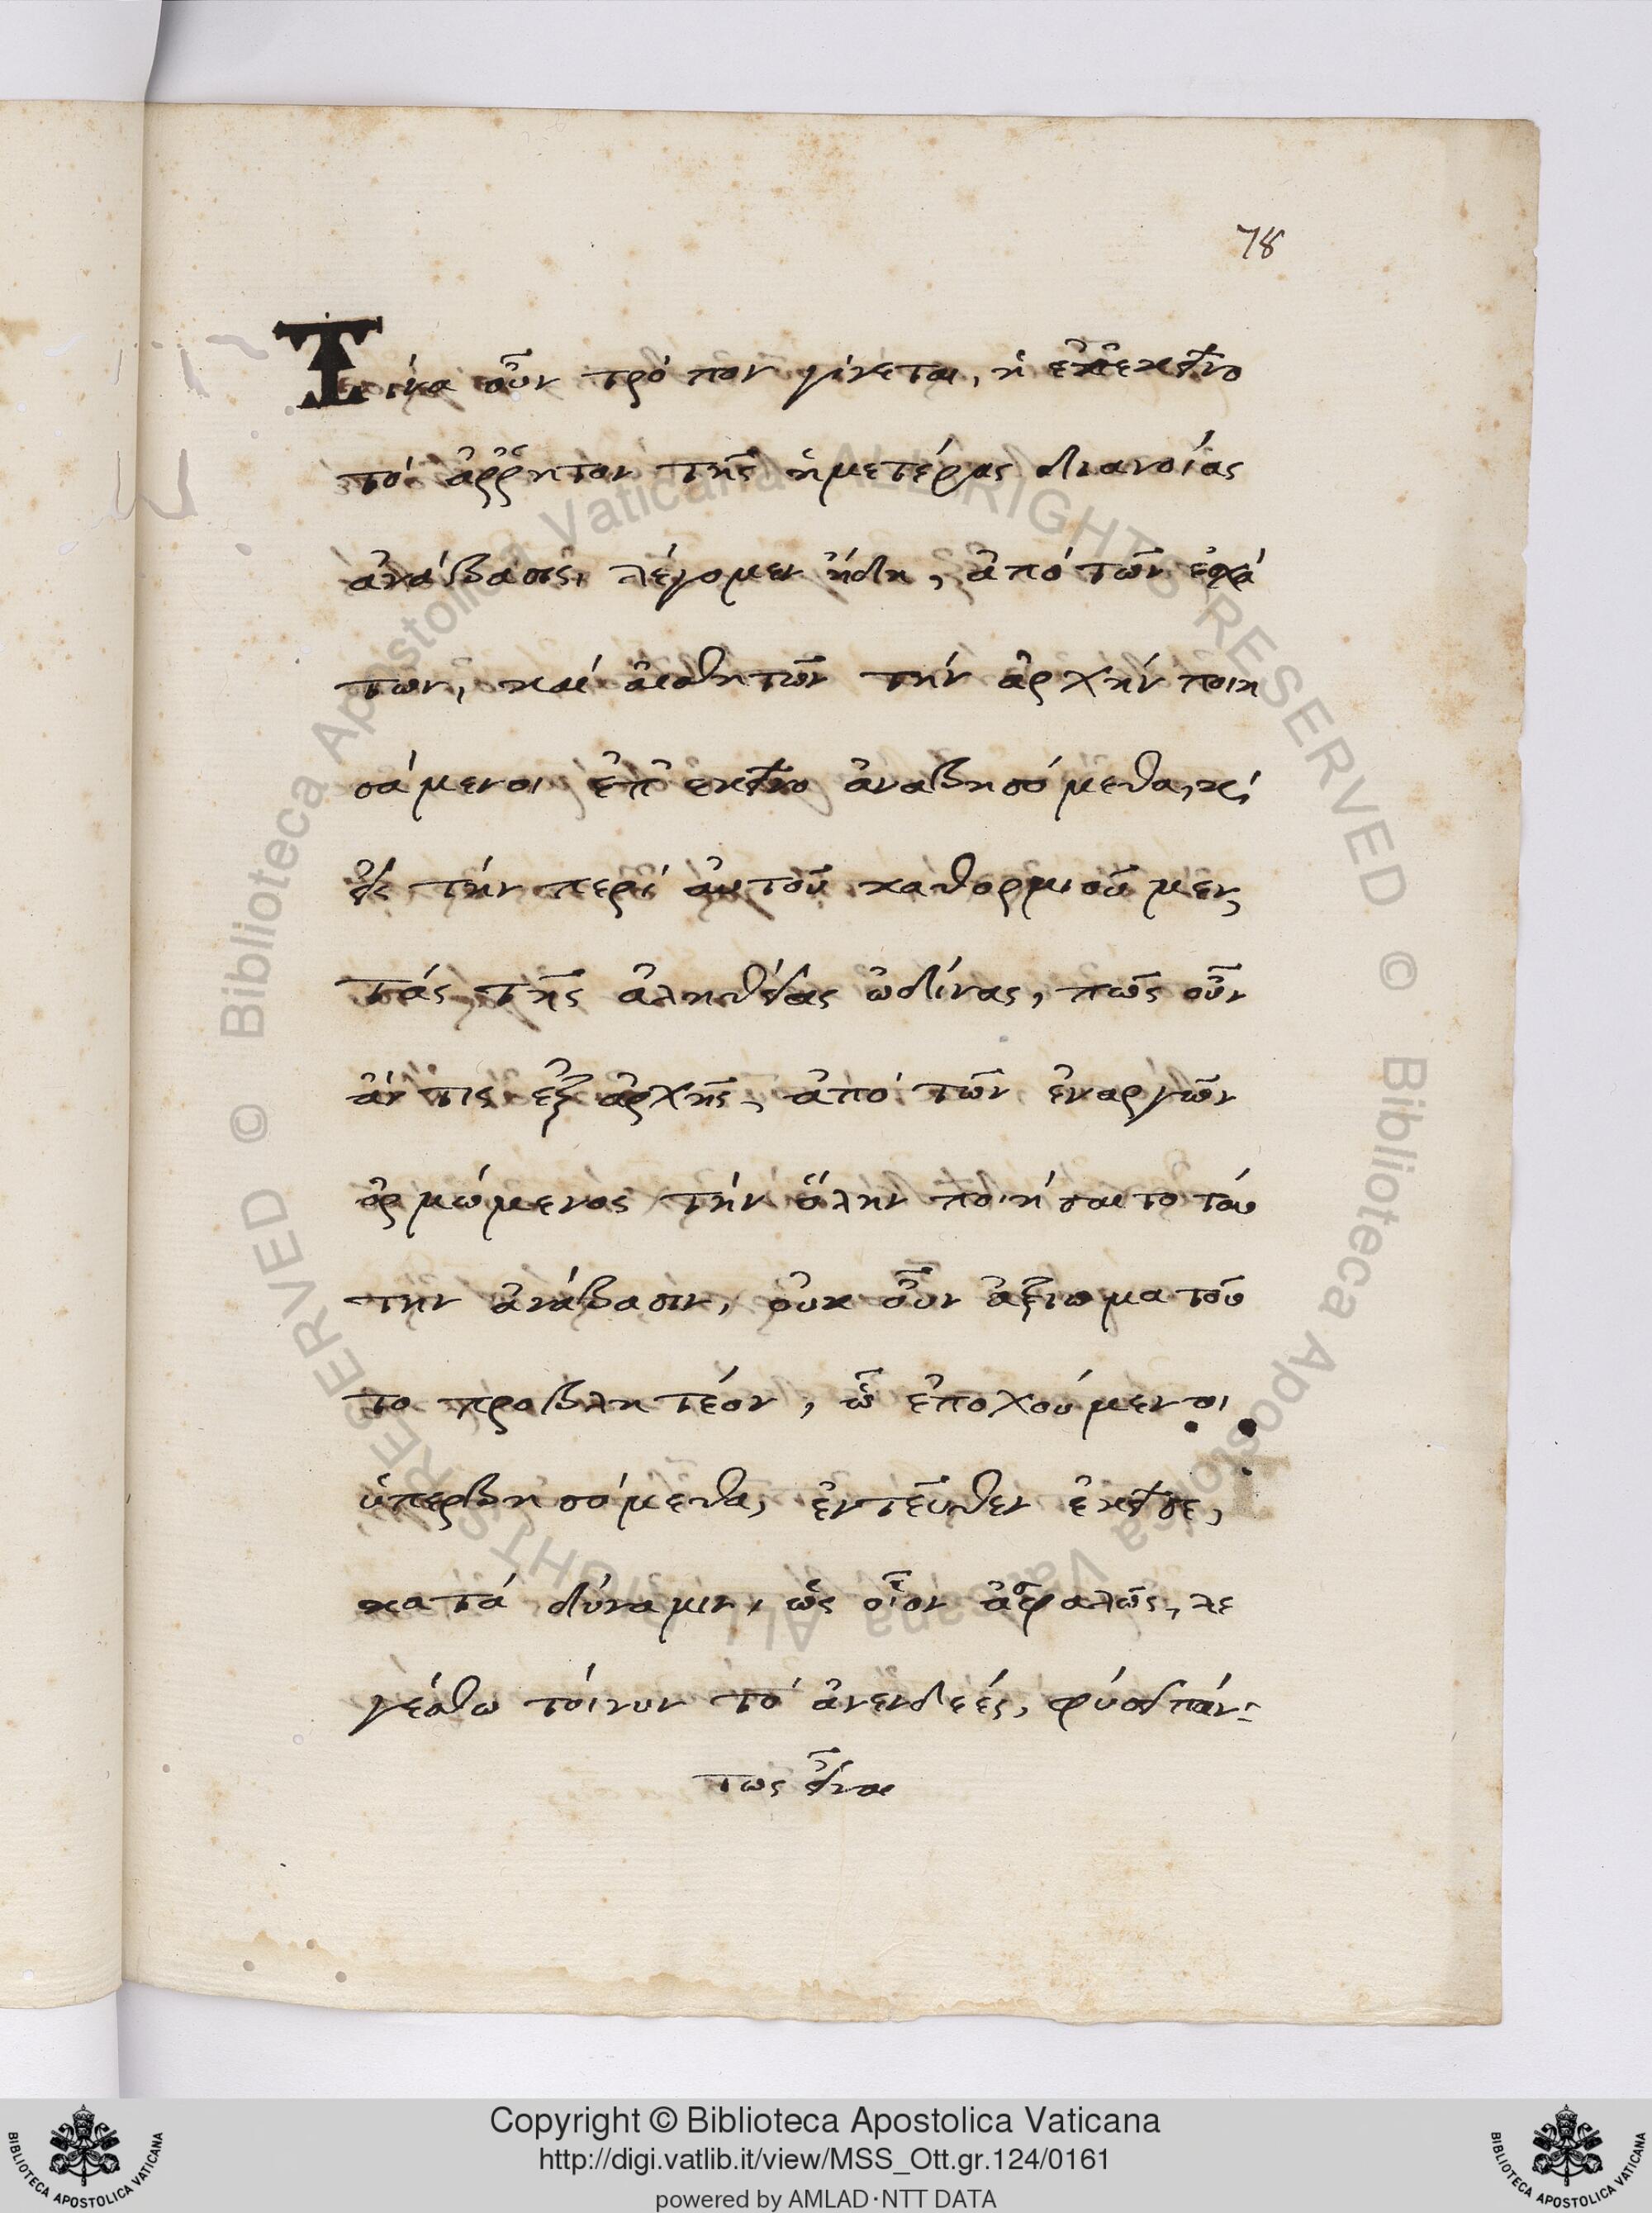 78
Τίνα οὖν τρόπον γίνεται, ἡ ἐπ' ἐκεῖνο
τὸ ἄῤῥητον τῆς ἡμετέρας διανοίας
ἀνάβασις, λέγομεν ἤδη, ἀπὸ τῶν ἐσχά
των, καὶ αἰσθητῶν τὴν ἀρχὴν ποιη
σάμενοι ἐπ' ἐκεῖνο ἀναβησόμεθα, κ,
εἰς τὴν περὶ αὐτοῦ καθορμιοῦμεν
τὰς τῆς ἀληθείας ὠδίνας, πῶς οὖν
ἄν τις ἐξ ἀρχῆς, ἀπὸ τῶν ἐναργῶν
ὁρμώμενος τὴν ὅλην ποιήσαιτο ταύ
την ἀνάβασιν, οὐκ οὖν ἀξίωμα τοῦ
το προβλητέον, ὧ ἐποχούμενοι
ὑπερβησόμεθα, ἐντεῦθεν ἐκεῖσε,
κατὰ δύναμιν, ὡς οἷον ἀσφαλῶς, λε
γέσθω τοίνυν τὸ ἀνενδεές, φύσει πάν-
τως εἶναι
© Biblioteca Apostolica Vaticana ALL RIGHTS RESERVED © Biblioteca Apostolica Vaticana ALL RIGHTS RESERVED
Copyright © Biblioteca Apostolica Vaticana
http://digi.vatlib.it/view/MSS_Ott.gr.124/0161
powered by AMLAD·NTT DATA
BIBLIOTECA APOSTOLICA VATICANA
BIBLIOTECA APOSTOLICA VATICANA